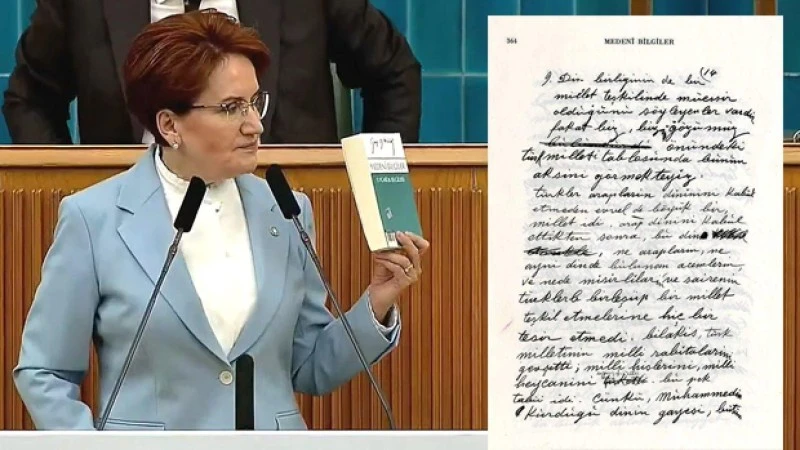 MEDENÎ BİLGİLER
364
MEDENÎ BİLGİLER
9. Din birliğinin de bir (14
millet teşkilinde müessir
olduğunu söyleyenler vardır
fakat biz, bizim gözümüz
önündeki
türk milleti tablosunda bunun
aksini görmekteyiz.
türkler arapların dinini kabul
etmeden evvel de büyük bir
millet idi. arap dinini kabul
ettikten sonra, bu din
ne arapların, ne
ayni dinde bulunan acemlerin
ve nede mısırlıların ve sairenin
türklerle birleşip bir millet
teşkil etmelerine hiç bir
tesir etmedi. bilakis, türk
milletinin milli rabıtalarını
gevşetti; milli hislerini, milli
heycanını bu pek
tabii idi. Çünkü, Muhammedin
kurduğu dinin gayesi, bütün